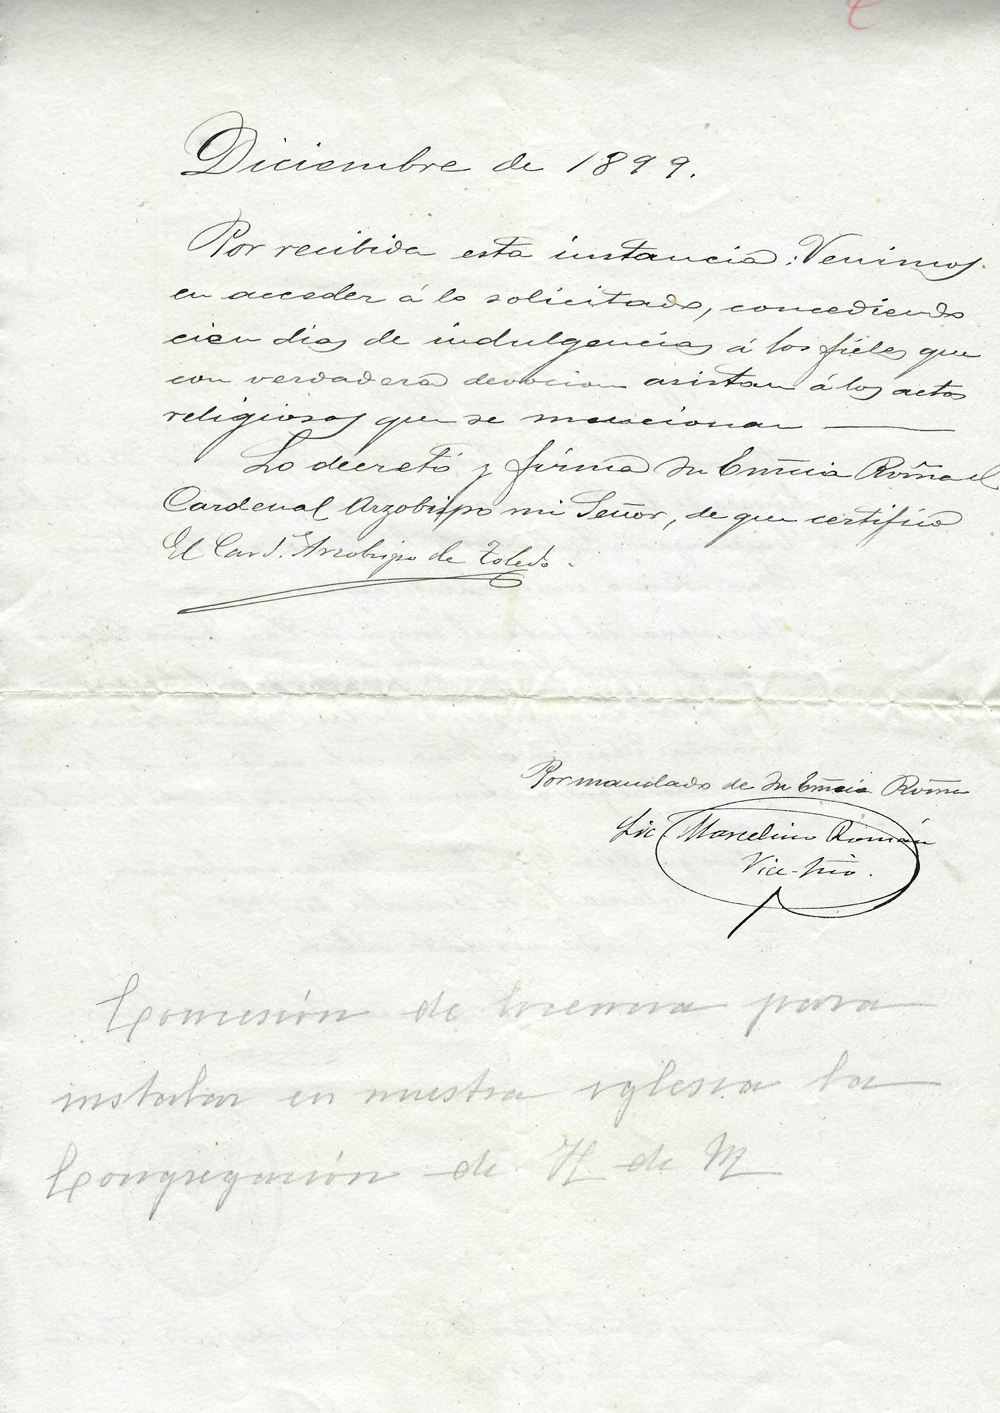 Diciembre de 1899.
Por recibida esta instancia: Venimos
en acceder á lo solicitado, concediendo
cien dias de indulgencias á los fieles que
con verdadera devocion asistan á los actos
religiosos que se mencionan
Lo decretó y firma Su Emcia Rvma el
Cardenal Arzobispo mi Señor, de que certifico
El Card. Arzobispo de Toledo.
Por mandado de Su Emcia Rvma
Lic. Marcelino Román
Vice-srio.
Concesión de licencia para
instalar en nuestra iglesia la
Congregación de H de M